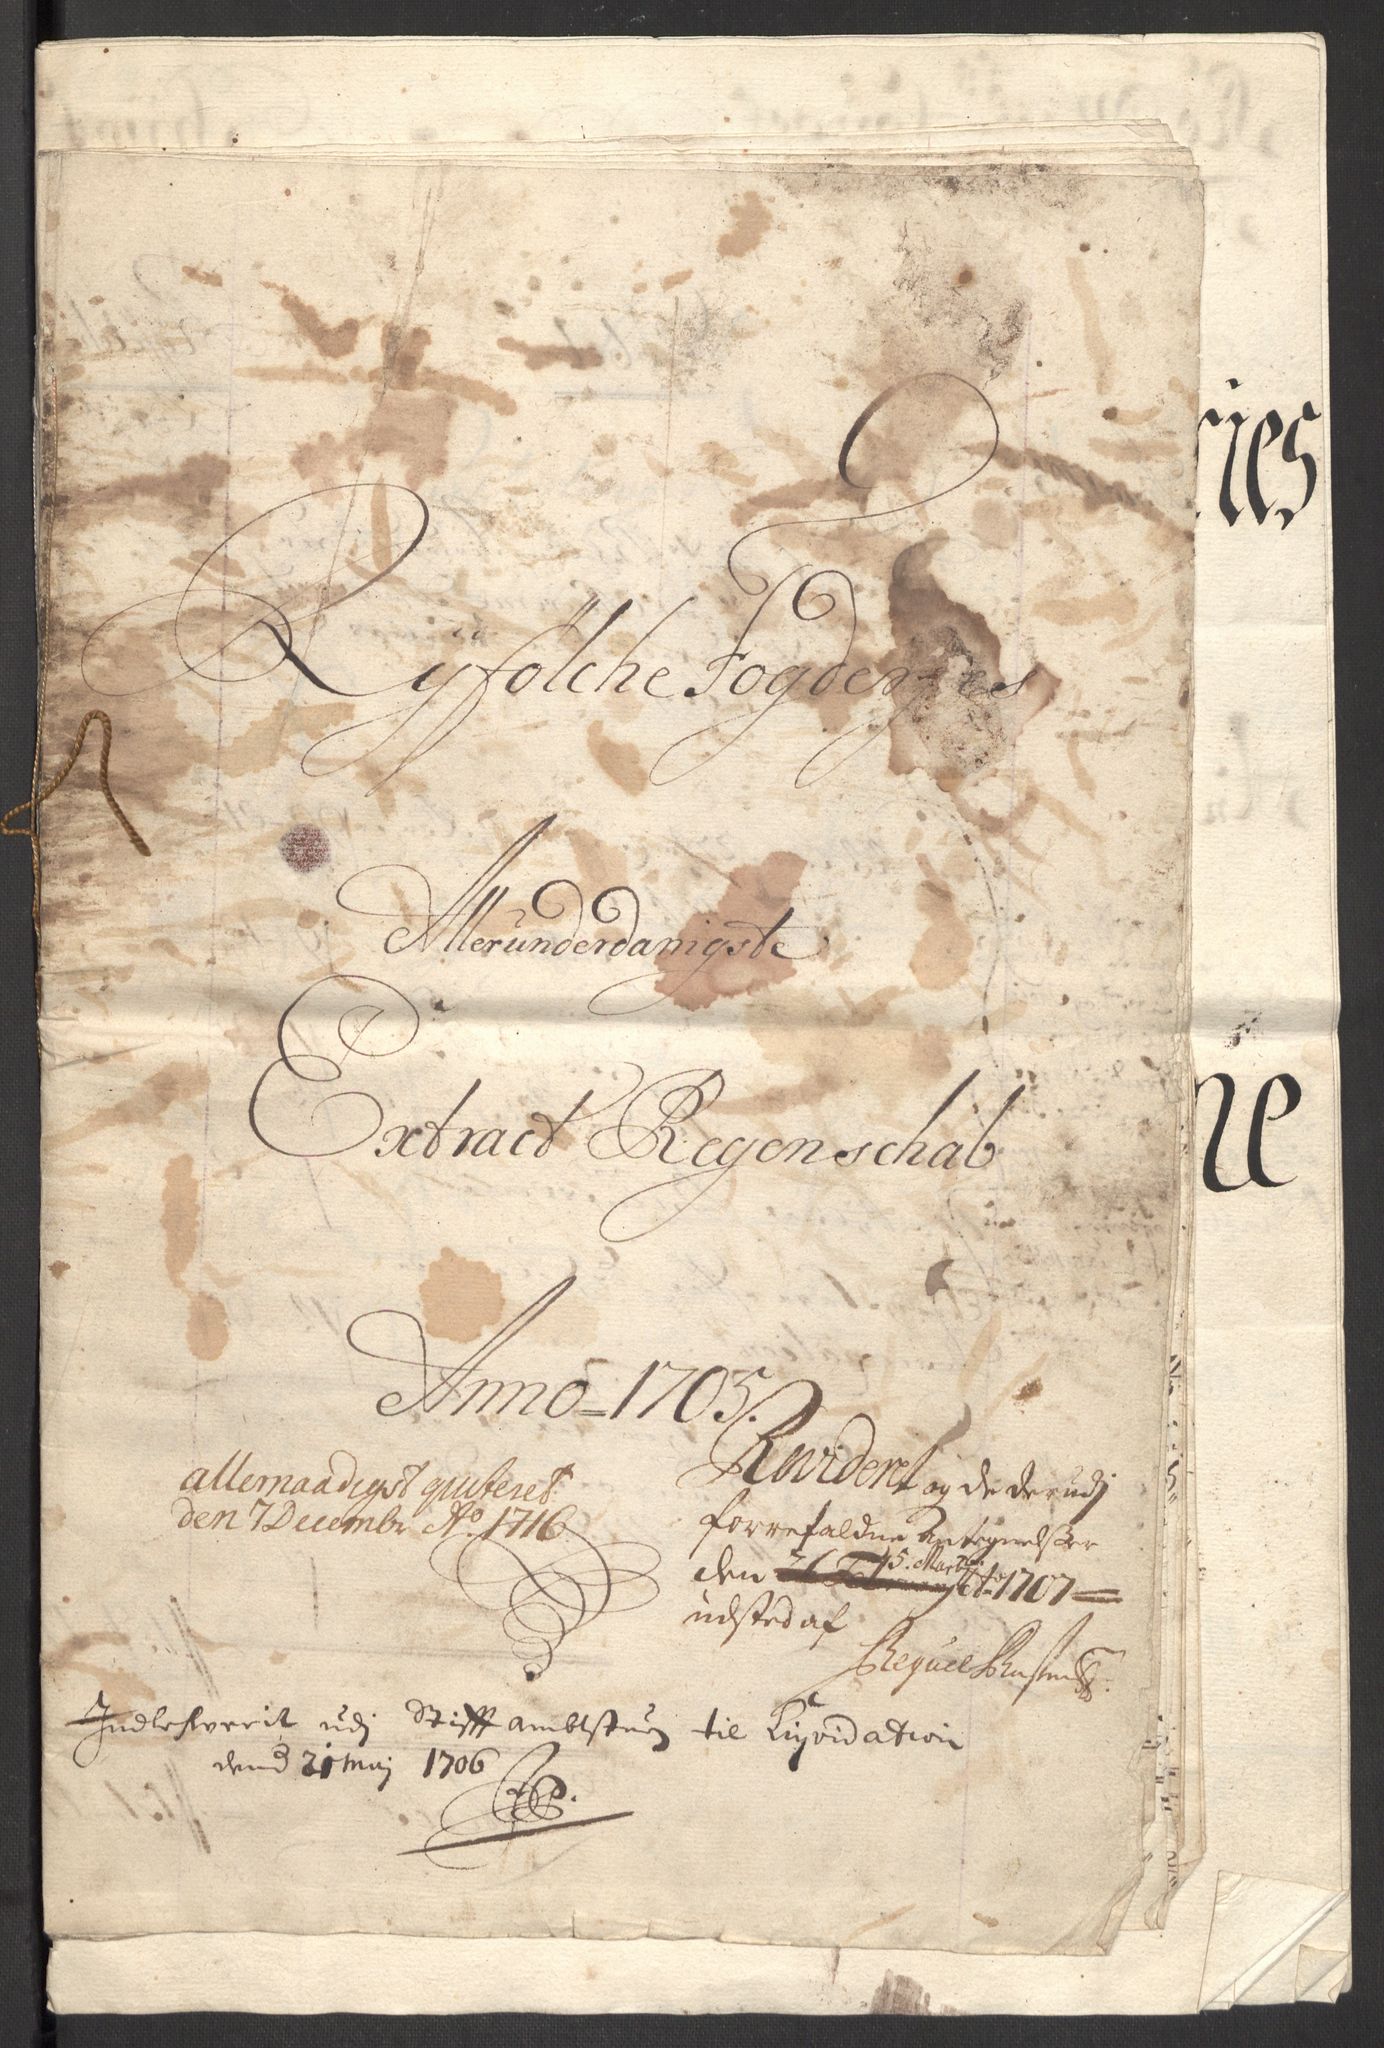 Ryfölche Fogderjes
Alleründerdanigste
Extract Regenschab
Anno 1705.
allernaadigst quiteret
den 7 Decembr Ao. 1716
Revideret og de derudj
forrefaldne Antegnelser
den 26 Februarij 15. Martij Ao 1707
udsted af
Indlefverit udj Stifft ambtstuen til Liqvidation
dend 21 Maj 1706
ries
ne